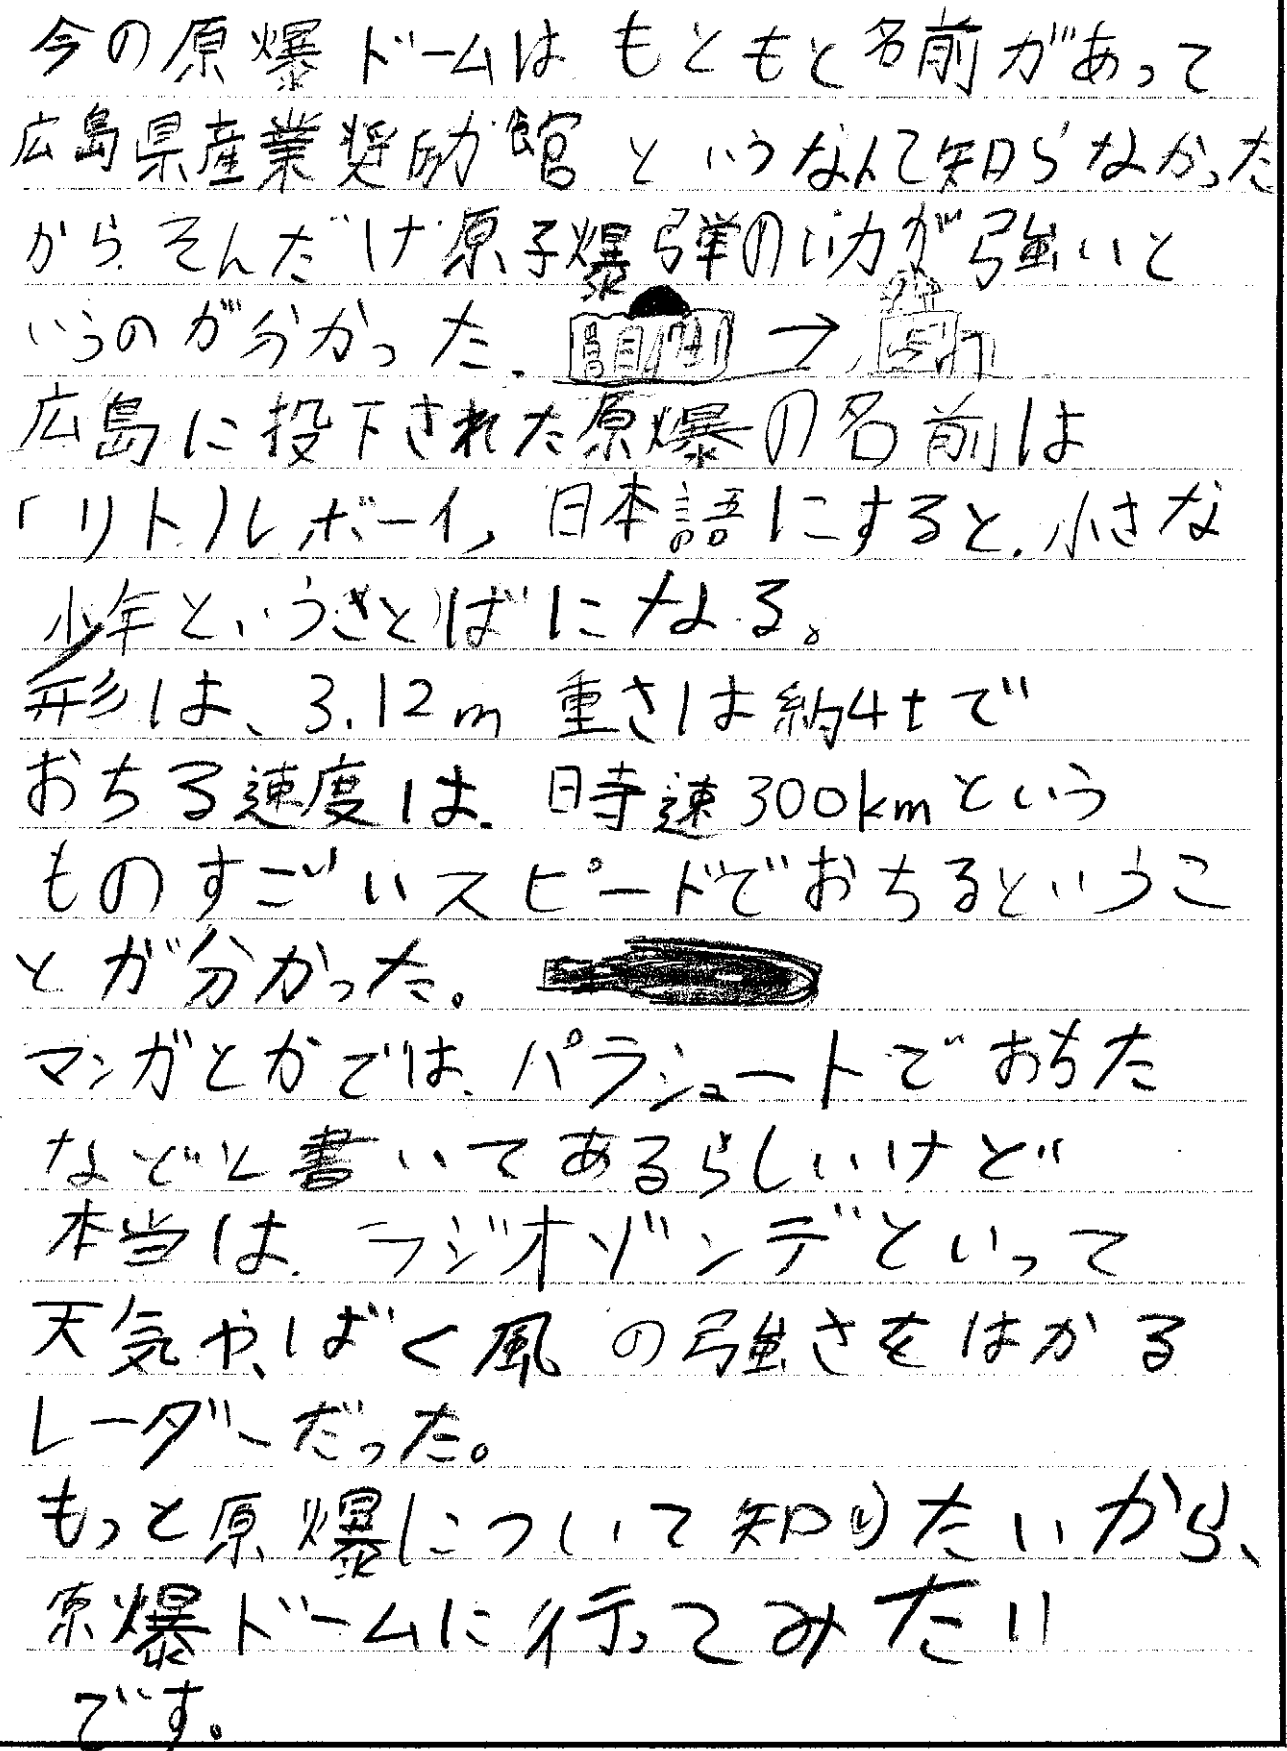 今の原爆ドームはもともと名前があって
広島県産業奨励館というなんて知らなかった
から、そんだけ原子爆弾の力が強いと
いうのが分かった。
広島に投下された原爆の名前は
「リトルボーイ」日本語にすると、小さな
少年ということばになる。
形は、3.12m 重さは約4tで
おちる速度は、時速300kmという
ものすごいスピードでおちるというこ
とが分かった。
マンガとかでは、パラシュートでおちた
などと書いてあるらしいけど
本当は、ラジオゾンデといって
天気や、ばく風の強さをはかる
レーダーだった。
もっと原爆について知りたいから、
原爆ドームに行ってみたい
です。